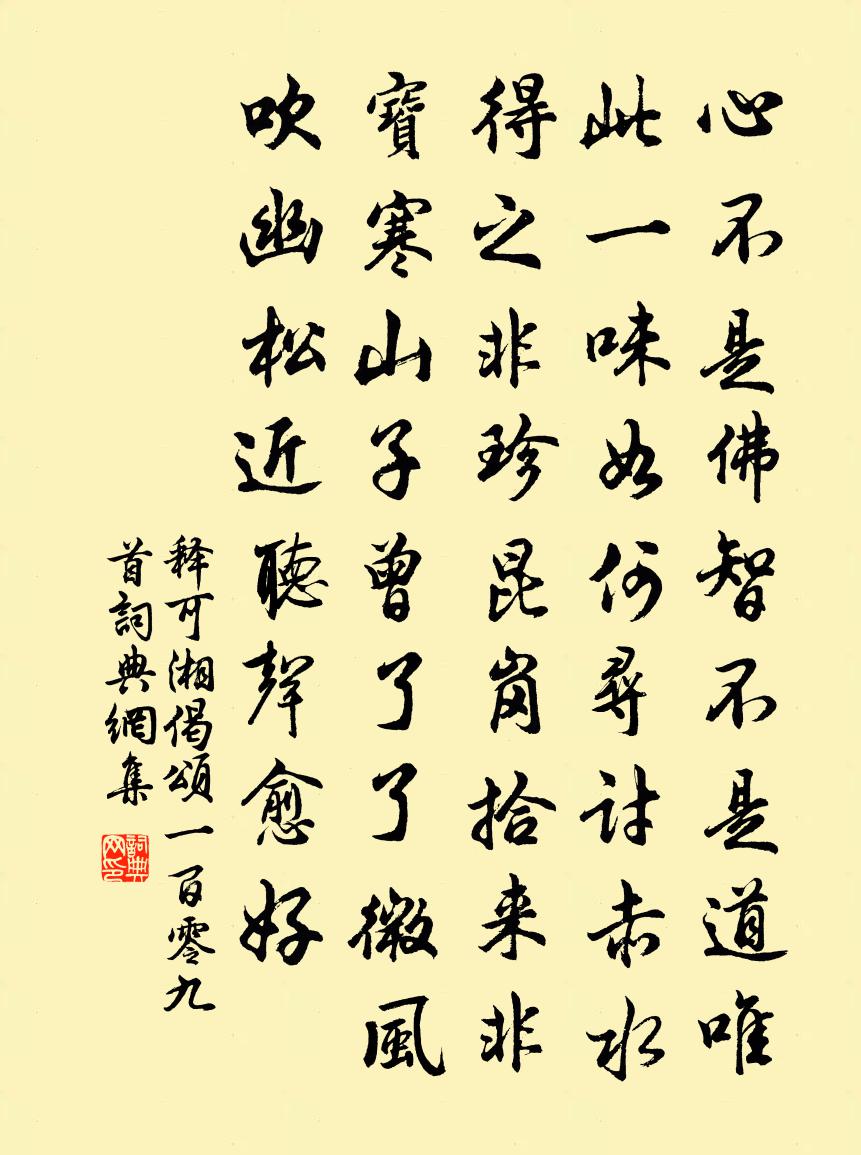 心不是佛智不是道唯
此一味如何尋討赤水
得之非珍昆崗拾来非
寶寒山子曾了了微風
吹幽松近聽聲愈好
釋可湘偈頌一百零九
首詞典網集
詞典网印